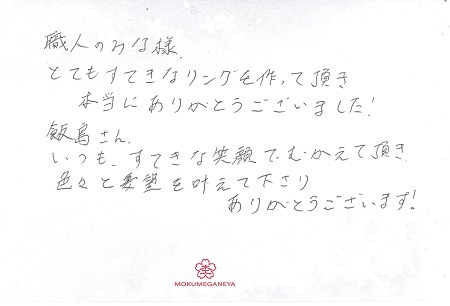 職人のみな様
とてもすてきなリングを作って頂き
本当にありがとうございました!
飯島さん、
いつも、すてきな笑顔でむかえて頂き
色々と要望を叶えて下さり
ありがとうございます!
MOKUMEGANEYA